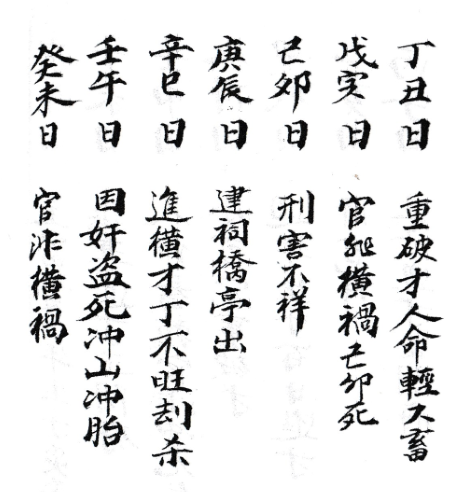 丁丑日 重破才人命輕大畜
戊寅日 官非橫禍己卯死
己卯日 刑害不祥
庚辰日 建祠橋亭出
辛巳日 進橫才丁不旺刦杀
壬午日 因奸盗死冲山冲胎
癸未日 官非橫禍